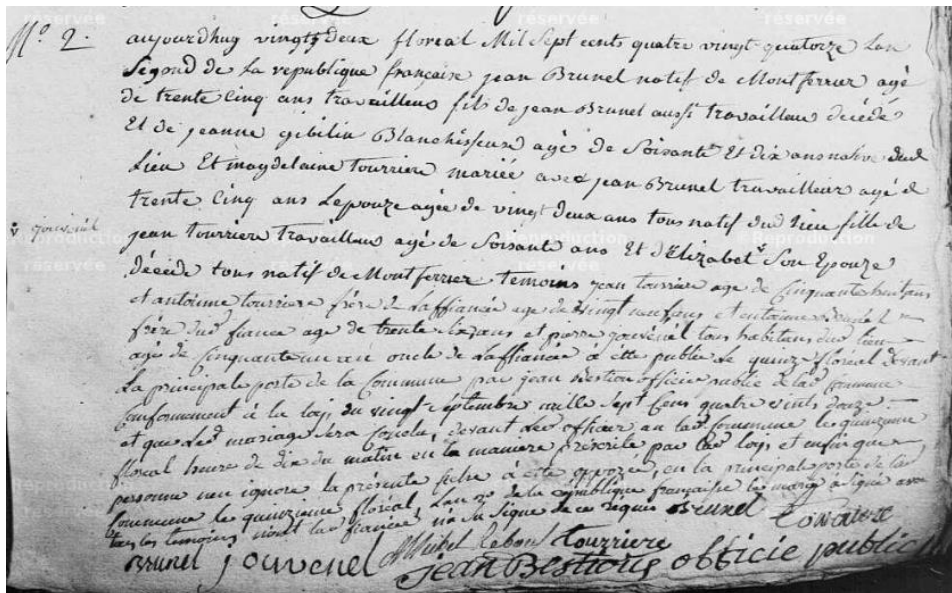 N.º 2.
aujourdhuy vingts deux floreal Mil Sept cents quatre vingt quatorze Lan
Segond de La republique française jean Brunel natif de Montferrier agé
de trente Cinq ans travailleus fils de jean Brunel aussi travailleur décédé
Et de jeanne gibilin Blanchisseuse agé de Soisante Et dix ans native dud
Lieu Et magdelaine tourriere mariée avec jean Brunel travailleur agé de
trente Cinq ans Lepouze agée de vingt deux ans tous natif dud Lieu fille de
+ jouvenel
jean tourriere travailleus agé de Soisante ans Et dElizabet Son Epouze
décédé tous natif de Montferrier temoins jean tourriere age de Cinquante huit ans
et antoinne tourriere frere de Laffiancée age de vingt neuf ans et antoinne Brunel
frére dud fiance age de trente ans et pierre jouvenel tous habitans dud lieu
agé de Cinquante un an oncle de Laffiancée a eté publié Le quinze floréal devant
La principale porte de la Commune par jean Bestion officié public de lad Commune
Conformement à la loy du vingt Septembre mille Sept Cens quatre vints douze
et que Led mariage Sera Conclu, devant Led officier en lad Commune le quinzieme
floreal heure de dix du matin en la maniere prescrite par lad loy, et enfin que
personne nen ignore la presente à eté en la principale porte de lad
Commune le quinzieme floréal Lan 2e de la république française le marié a Signé avec
tous les temoins non la fiancée na Su Signe de ce requis Brunel touriere
Brunel jouvenel Michel Lebon tourriere
jean Bestion officie public